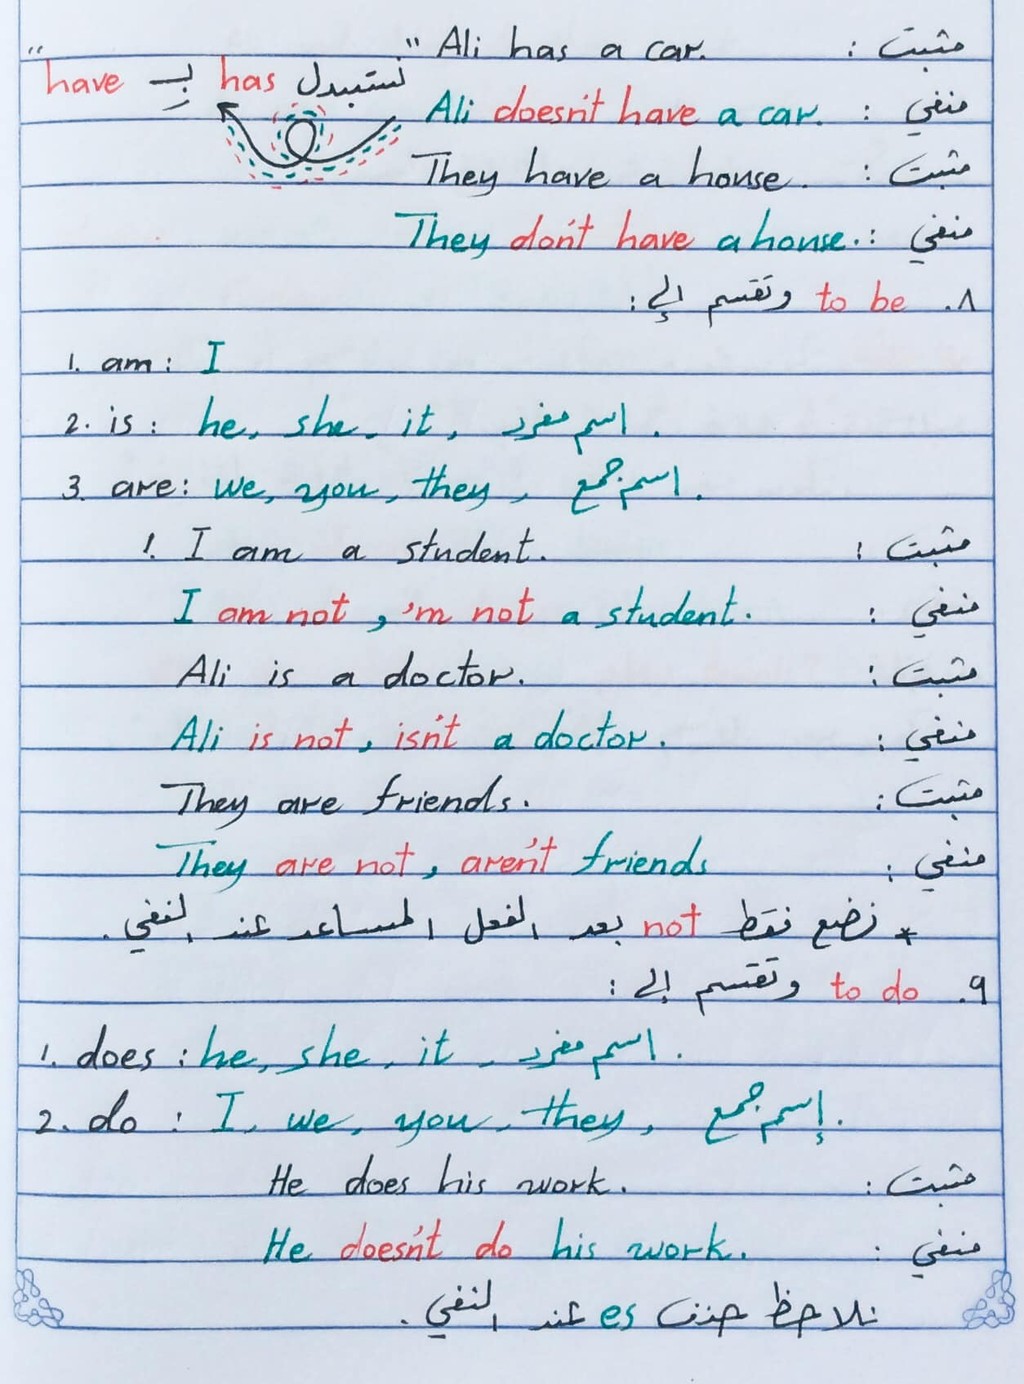 مثبت : Ali has a car.
" نستبدل has بـِ have "
منفي : Ali doesn't have a car.
مثبت : They have a house.
منفي : They don't have a house.
٨. to be وتقسم إلى :
1. am : I
2. is : he, she, it, اسم مفرد.
3. are : we, you, they, اسم جمع.
مثبت : ! I am a student.
منفي : I am not , 'm not a student.
مثبت : Ali is a doctor.
منفي : Ali is not , isn't a doctor.
مثبت : They are friends.
منفي : They are not , aren't friends
* نضع فقط not بعد الفعل المساعد عند النفي.
٩. to do وتقسم إلى :
1. does : he, she, it, اسم مفرد.
2. do : I, we, you, they, إسم جمع.
مثبت : He does his work.
منفي : He doesn't do his work.
نلاحظ حذف es عند النفي.